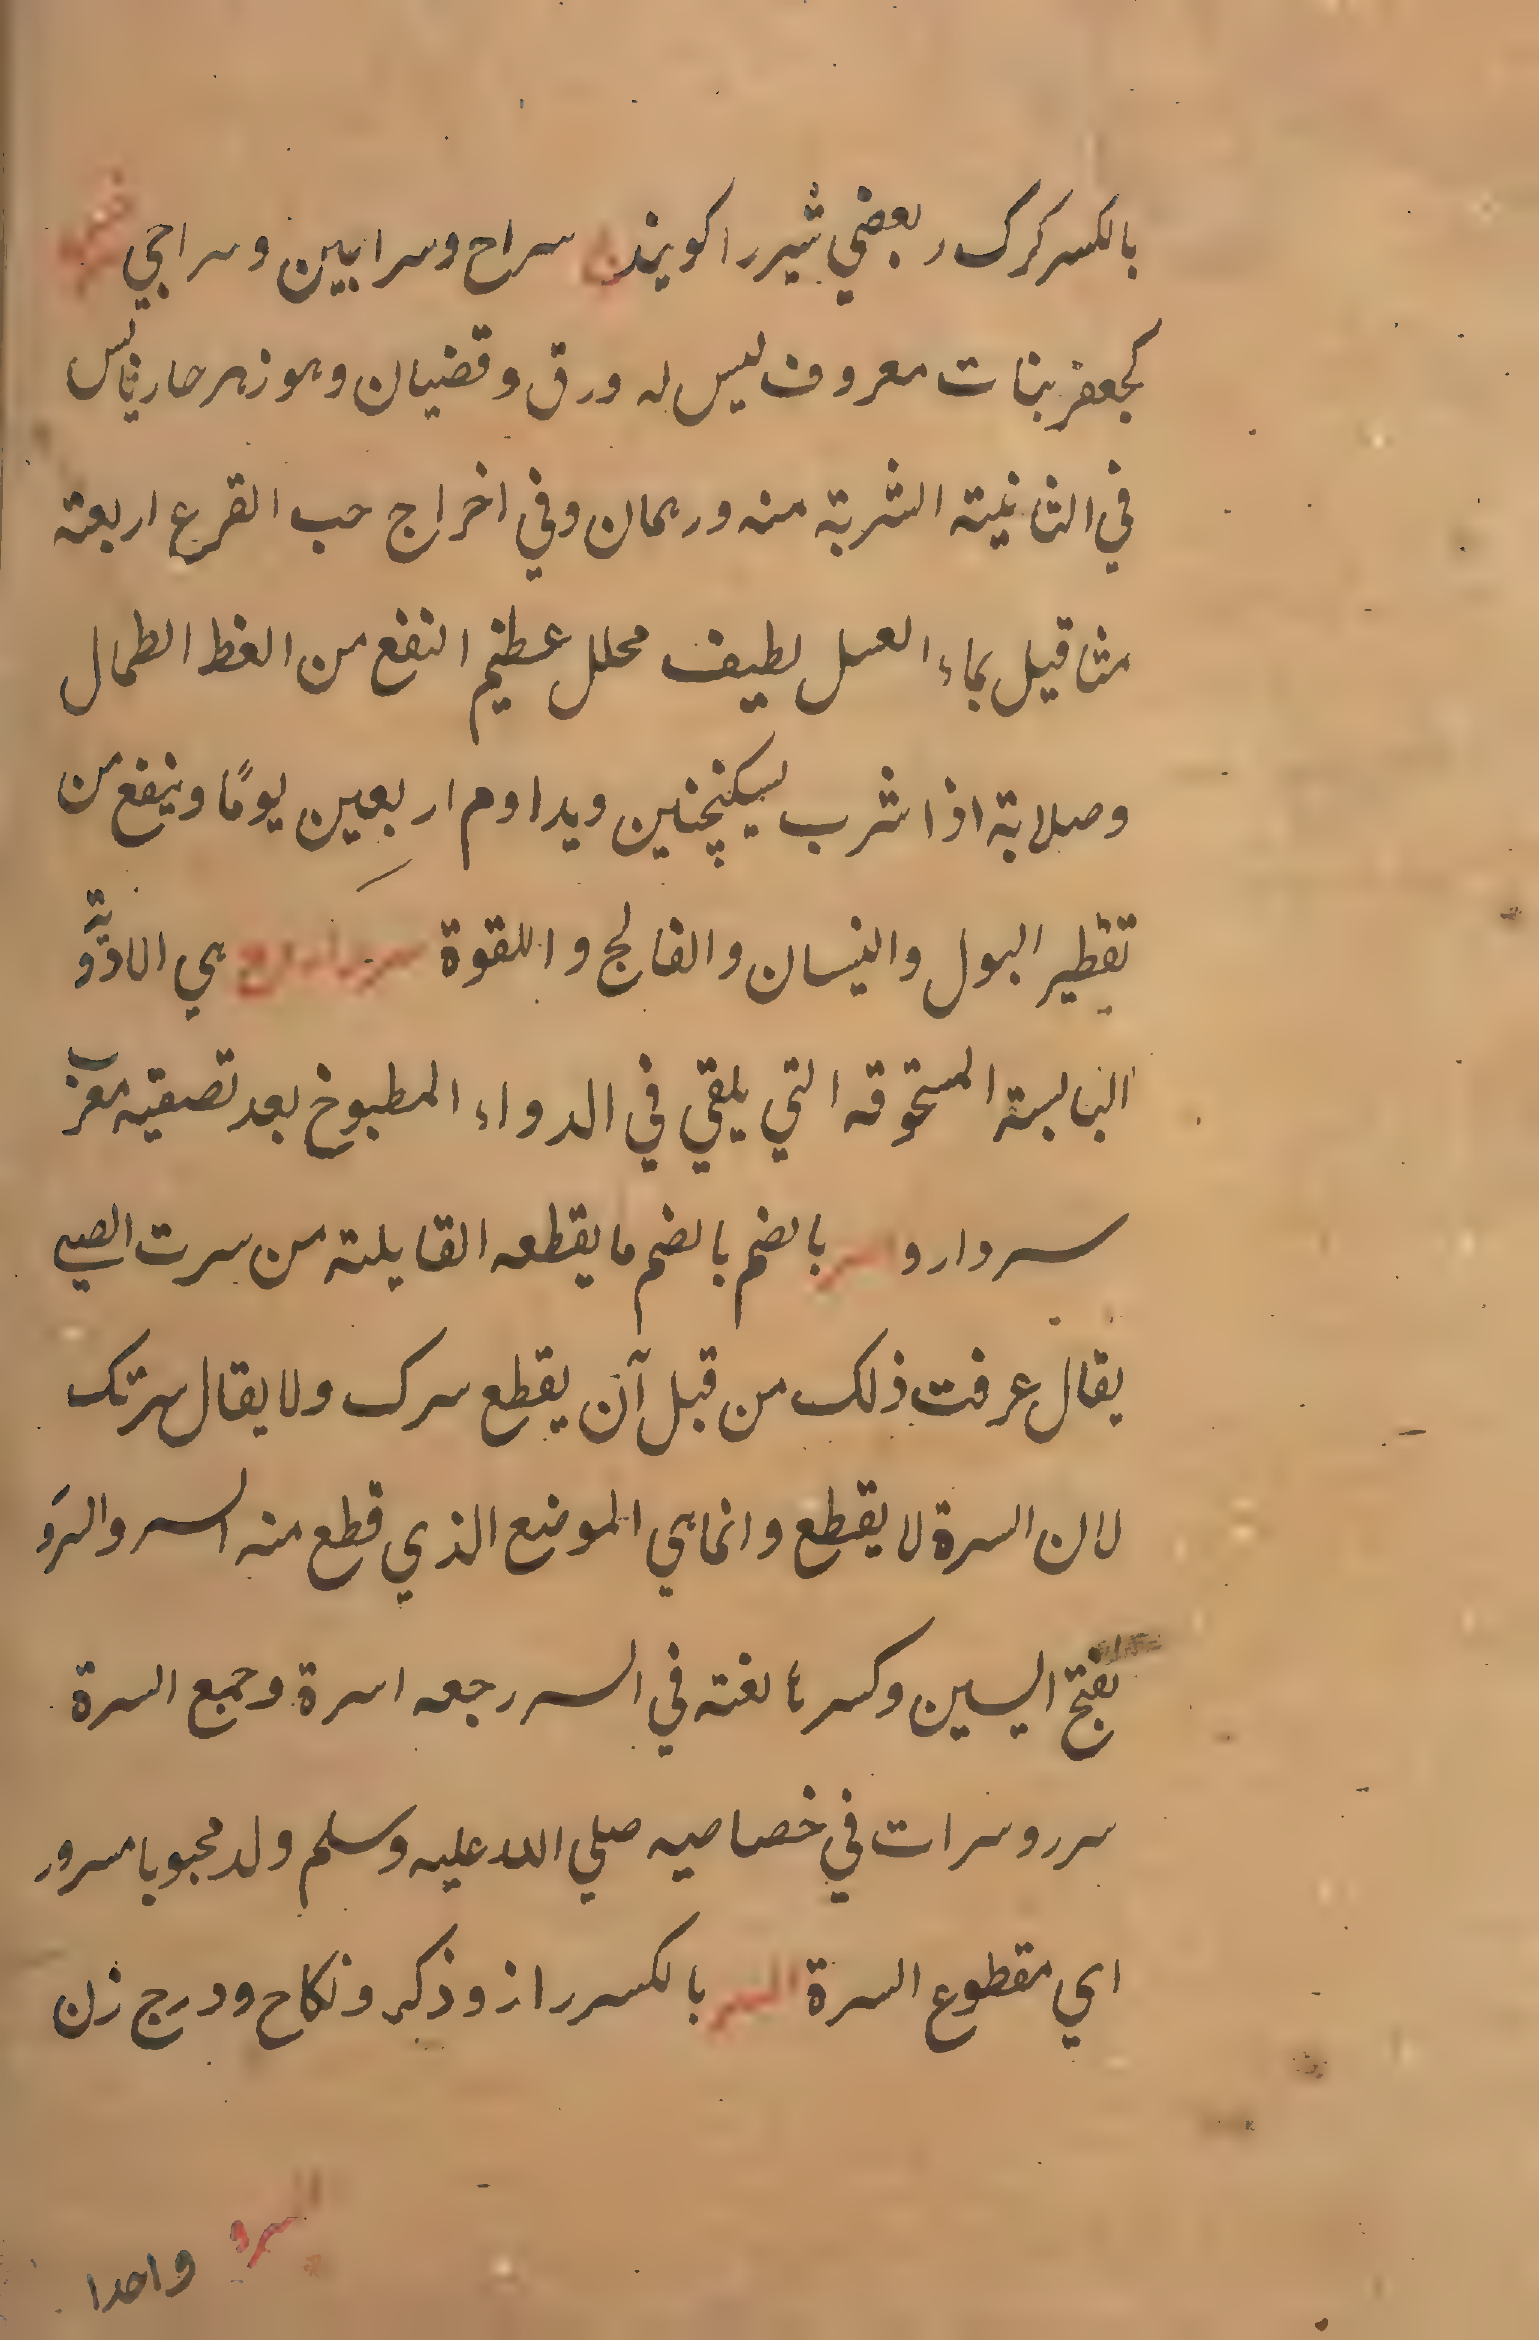 بالکسر کرک ر بعضي شیر را کویند ن سراح وسرابین وسراجي سرخس
کجعفر بنات معروف لیس له ورق وقضیان وهو زهر حار یابس
في الثانیة الشربة منه ورهمان وفي اخراج حب القرع اربعة
مثاقیل بماء العسل لطیف محلل عظیم النفع من الغظ الطمال
وصلابة اذا شرب لیسکنجنین ویداوم اربعین یومًا وینفع من
تقطیر البول والنیسان والفالج واللقوة هي الادویّة
الیابسة المستحوقه التي یلقي في الدواء المطبوخ بعد تصفیه معرب
سردارو السر بالضم بالضم ما یقطعه القابلة من سرت الصبي
یقال عرفت ذلک من قبل آن یقطع سرک ولا یقال سرتک
لان السرة لا یقطع وانما هي الموضع الذي قطع منه السر والسرو
بفتح السین وکسرها لغته في السر رجعه اسرة وجمع السرة
سرر وسرات في خصاصیه صلي الله علیه وسلم ولد محبوبا مسرور
اي مقطوع السرة السر بالکسر راز وذکر ونکاح ودرج زن
السرو واحدا